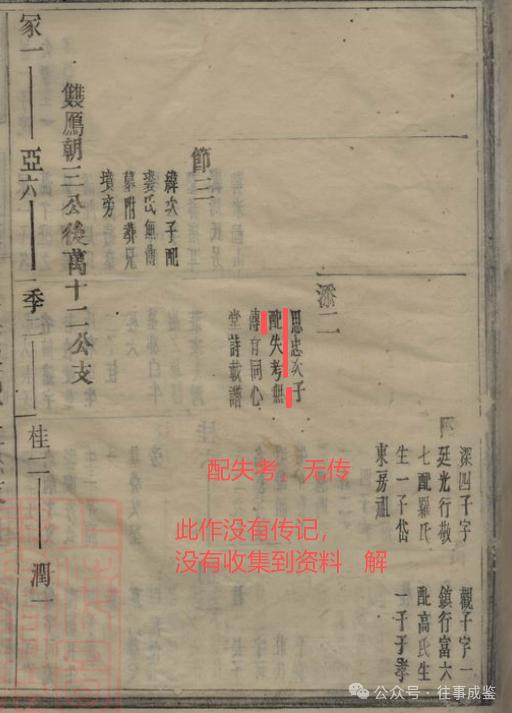 深四子字
廷光行敬
七配羅氏
生一子岱
東房祖
觀子字一
鎮行富六
配高氏生
一子于孝
深二
思忠次子
配失考無
傳有同心
堂詩載譜
節三
緯次子配
龔氏無傳
墓附葬兄
墳旁
雙鴈朝三公後萬十二公支
冢一
亞六
季一
桂二
潤一
配失考，无传
此作没有传记，
没有收集到资料 解
公众号·往事成鉴